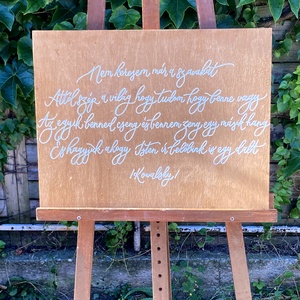 Nem keresem már a szavakat
Attól szép a világ, hogy tudom, hogy benne vagy
Az egyik benned cseng és bennem zeng egy másik hang
És hagyjuk, ahogy Isten is belénk is egy dalt
/Kowalsky/